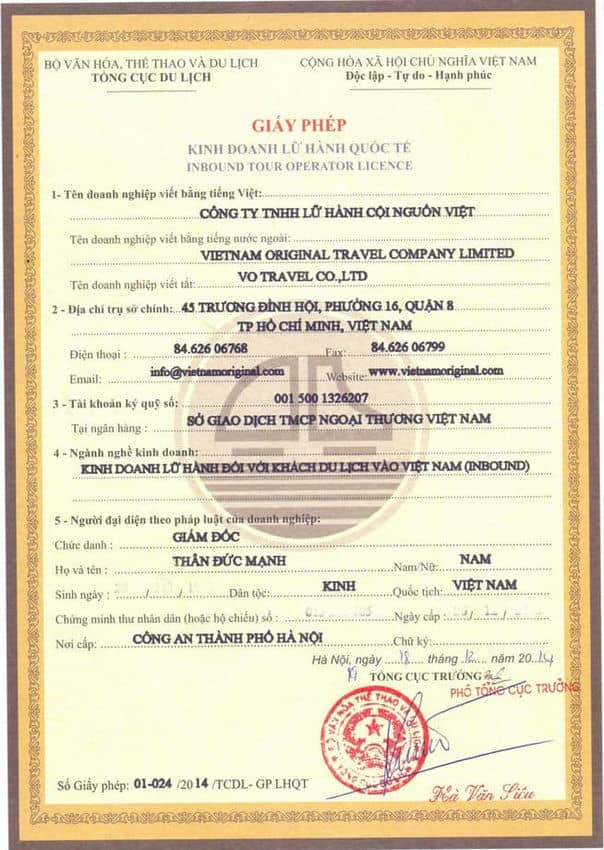 BỘ VĂN HÓA, THỂ THAO VÀ DU LỊCH
TỔNG CỤC DU LỊCH
CỘNG HÒA XÃ HỘI CHỦ NGHĨA VIỆT NAM
Độc lập - Tự do - Hạnh phúc
GIẤY PHÉP
KINH DOANH LỮ HÀNH QUỐC TẾ
INBOUND TOUR OPERATOR LICENCE
1- Tên doanh nghiệp viết bằng tiếng Việt:
CÔNG TY TNHH LỮ HÀNH CỘI NGUỒN VIỆT
Tên doanh nghiệp viết bằng tiếng nước ngoài:
VIETNAM ORIGINAL TRAVEL COMPANY LIMITED
Tên doanh nghiệp viết tắt: VO TRAVEL CO.,LTD
2 - Địa chỉ trụ sở chính: 45 TRƯƠNG ĐÌNH HỘI, PHƯỜNG 16, QUẬN 8
TP HỒ CHÍ MINH, VIỆT NAM
Điện thoại : 84.626 06768 Fax: 84.626 06799
Email: info@vietnamoriginal.com Website: www.vietnamoriginal.com
3 - Tài khoản ký quỹ số: 001 500 1326207
Tại ngân hàng : SỞ GIAO DỊCH TMCP NGOẠI THƯƠNG VIỆT NAM
4 - Ngành nghề kinh doanh:
KINH DOANH LỮ HÀNH ĐỐI VỚI KHÁCH DU LỊCH VÀO VIỆT NAM (INBOUND)
5 - Người đại diện theo pháp luật của doanh nghiệp:
Chức danh : GIÁM ĐỐC
Họ và tên : THÂN ĐỨC MẠNH Nam/Nữ: NAM
Sinh ngày : / / Dân tộc: KINH Quốc tịch: VIỆT NAM
Chứng minh thư nhân dân (hoặc hộ chiếu) số : Ngày cấp :
Nơi cấp: CÔNG AN THÀNH PHỐ HÀ NỘI Chữ ký:
Hà Nội, ngày 18 tháng 12 năm 2014
TỔNG CỤC TRƯỞNG
PHÓ TỔNG CỤC TRƯỞNG
BỘ VĂN HÓA THỂ THAO VÀ DU LỊCH
TỔNG CỤC DU LỊCH
Số Giấy phép: 01-024 /2014 /TCDL- GP LHQT
Hà Văn Siêu